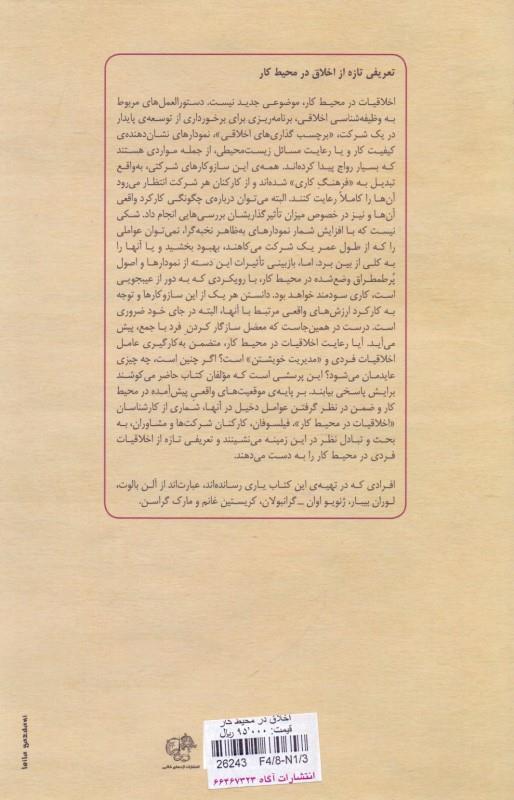 تعریفی تازه از اخلاق در محیط کار
اخلاقیات در محیط کار، موضوعی جدید نیست. دستورالعمل‌های مربوط
به وظیفه‌شناسی اخلاقی، برنامه‌ریزی برای برخورداری از توسعه‌ی پایدار
در یک شرکت، «برچسب گذاری‌های اخلاقی»، نمودارهای نشان‌دهنده‌ی
کیفیت کار و یا رعایت مسائل زیست‌محیطی، از جمله مواردی هستند
که بسیار رواج پیدا کرده‌اند. همه‌ی این سازوکارهای شرکتی، به‌واقع
تبدیل به «فرهنگِ کاری» شده‌اند و از کارکنان هر شرکت انتظار می‌رود
آن‌ها را کاملاً رعایت کنند. البته می‌توان درباره‌ی چگونگی کارکرد واقعی
آن‌ها و نیز در خصوص میزان تأثیرگذاریشان بررسی‌هایی انجام داد. شکی
نیست که با افزایش شمار نمودارهای به‌ظاهر نخبه‌گرا، نمی‌توان عواملی
را که از طول عمر یک شرکت می‌کاهند، بهبود بخشید و یا آنها را
به کلی از بین برد. اما، بازبینی تأثیرات این دسته از نمودارها و اصول
پُرطمطراق وضع‌شده در محیط کار، با رویکردی که به دور از عیبجویی
است، کاری سودمند خواهد بود. دانستن هر یک از این سازوکارها و توجه
به کارکرد ارزش‌های واقعی مرتبط با آنها، البته در جای خود ضروری
است. درست در همین‌جاست که معضل سازگار کردنِ فرد با جمع، پیش
می‌آید. آیا رعایت اخلاقیات در محیط کار، متضمن به‌کارگیری عامل
اخلاقیات فردی و «مدیریت خویشتن» است؟ اگر چنین است، چه چیزی
عایدمان می‌شود؟ این پرسشی است که مؤلفان کتاب حاضر می‌کوشند
برایش پاسخی بیابند. بر پایه‌ی موقعیت‌های واقعی پیش‌آمده در محیط
کار و ضمن در نظر گرفتن عوامل دخیل در آنها، شماری از کارشناسان
«اخلاقیات در محیط کار»، فیلسوفان، کارکنان شرکت‌ها و مشاوران، به
بحث و تبادل نظر در این زمینه می‌نشینند و تعریفی تازه از اخلاقیات
فردی در محیط کار را به دست می‌دهند.
افرادی که در تهیه‌ی این کتاب یاری رسانده‌اند، عبارت‌اند از آلن بالوت،
لوران بیبار، ژنویو اوان ــ گرانبولان، کریستین غانم و مارک گراسن.
اخلاق در محیط کار
قیمت: ۹۵٬۰۰۰ ریال
26243 F4/8-N1/3
انتشارات آگاه ۶۶۴۶۷۳۲۳